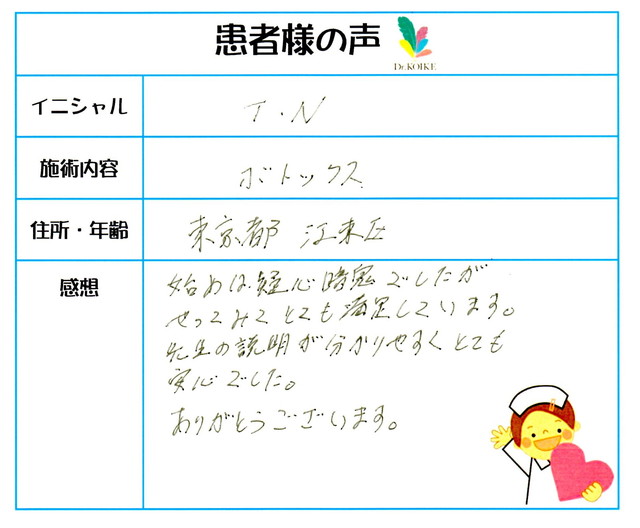 患者様の声
Dr.KOIKE
イニシャル
T.N
施術内容
ボトックス
住所・年齢
東京都 江東区
感想
始めは疑心暗鬼でしたが
やってみてとても満足しています。
先生の説明が分かりやすくとても
安心でした。
ありがとうございます。